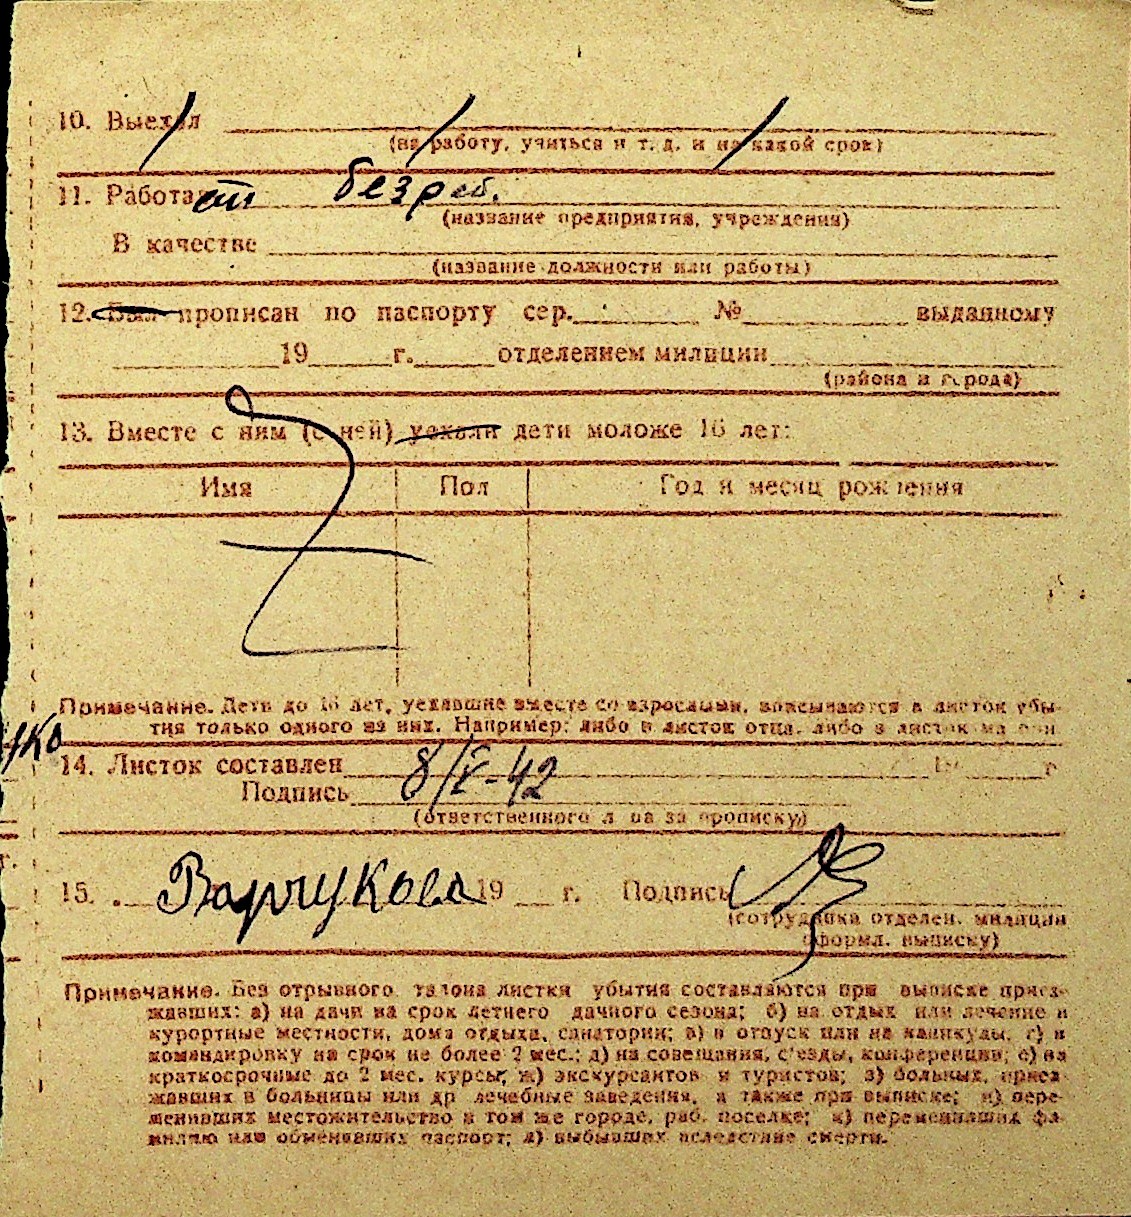 10. Выехал
(на работу, учиться и т. д. и на какой срок)
11. Работает безраб.
(название предприятия, учреждения)
В качестве
(название должности или работы)
12. Был прописан по паспорту сер. № выданному
19 г. отделением милиции
(района и города)
13. Вместе с ним (с ней) уехали дети моложе 16 лет:
Имя Пол Год и месяц рождения
Примечание. Дети до 16 лет, уехавшие вместе со взрослыми, вписываются в листок убы-
тия только одного из них. Например: либо в листок отца, либо в листок
14. Листок составлен 8/V-42 г.
Подпись
(ответственного лица за прописку)
15. 19 г. Подпись
(сотрудника отделен. милиции
оформл. выписку)
Примечание. Без отрывного талона листки убытия составляются при выписке приез-
жавших: а) на дачи на срок летнего дачного сезона; б) на отдых или лечение в
курортные местности, дома отдыха, санатории; в) в отпуск или на каникулы, г) в
командировку на срок не более 2 мес.; д) на совещания, с'езды, конференции; е) на
краткосрочные до 2 мес. курсы; ж) экскурсантов и туристов; з) больных, приез-
жавших в больницы или др лечебные заведения, а также при выписке; и) пере-
менивших местожительство в том же городе, раб. поселке; к) переменивших фа-
милию или обменявших паспорт; л) выбывших вследствие смерти.